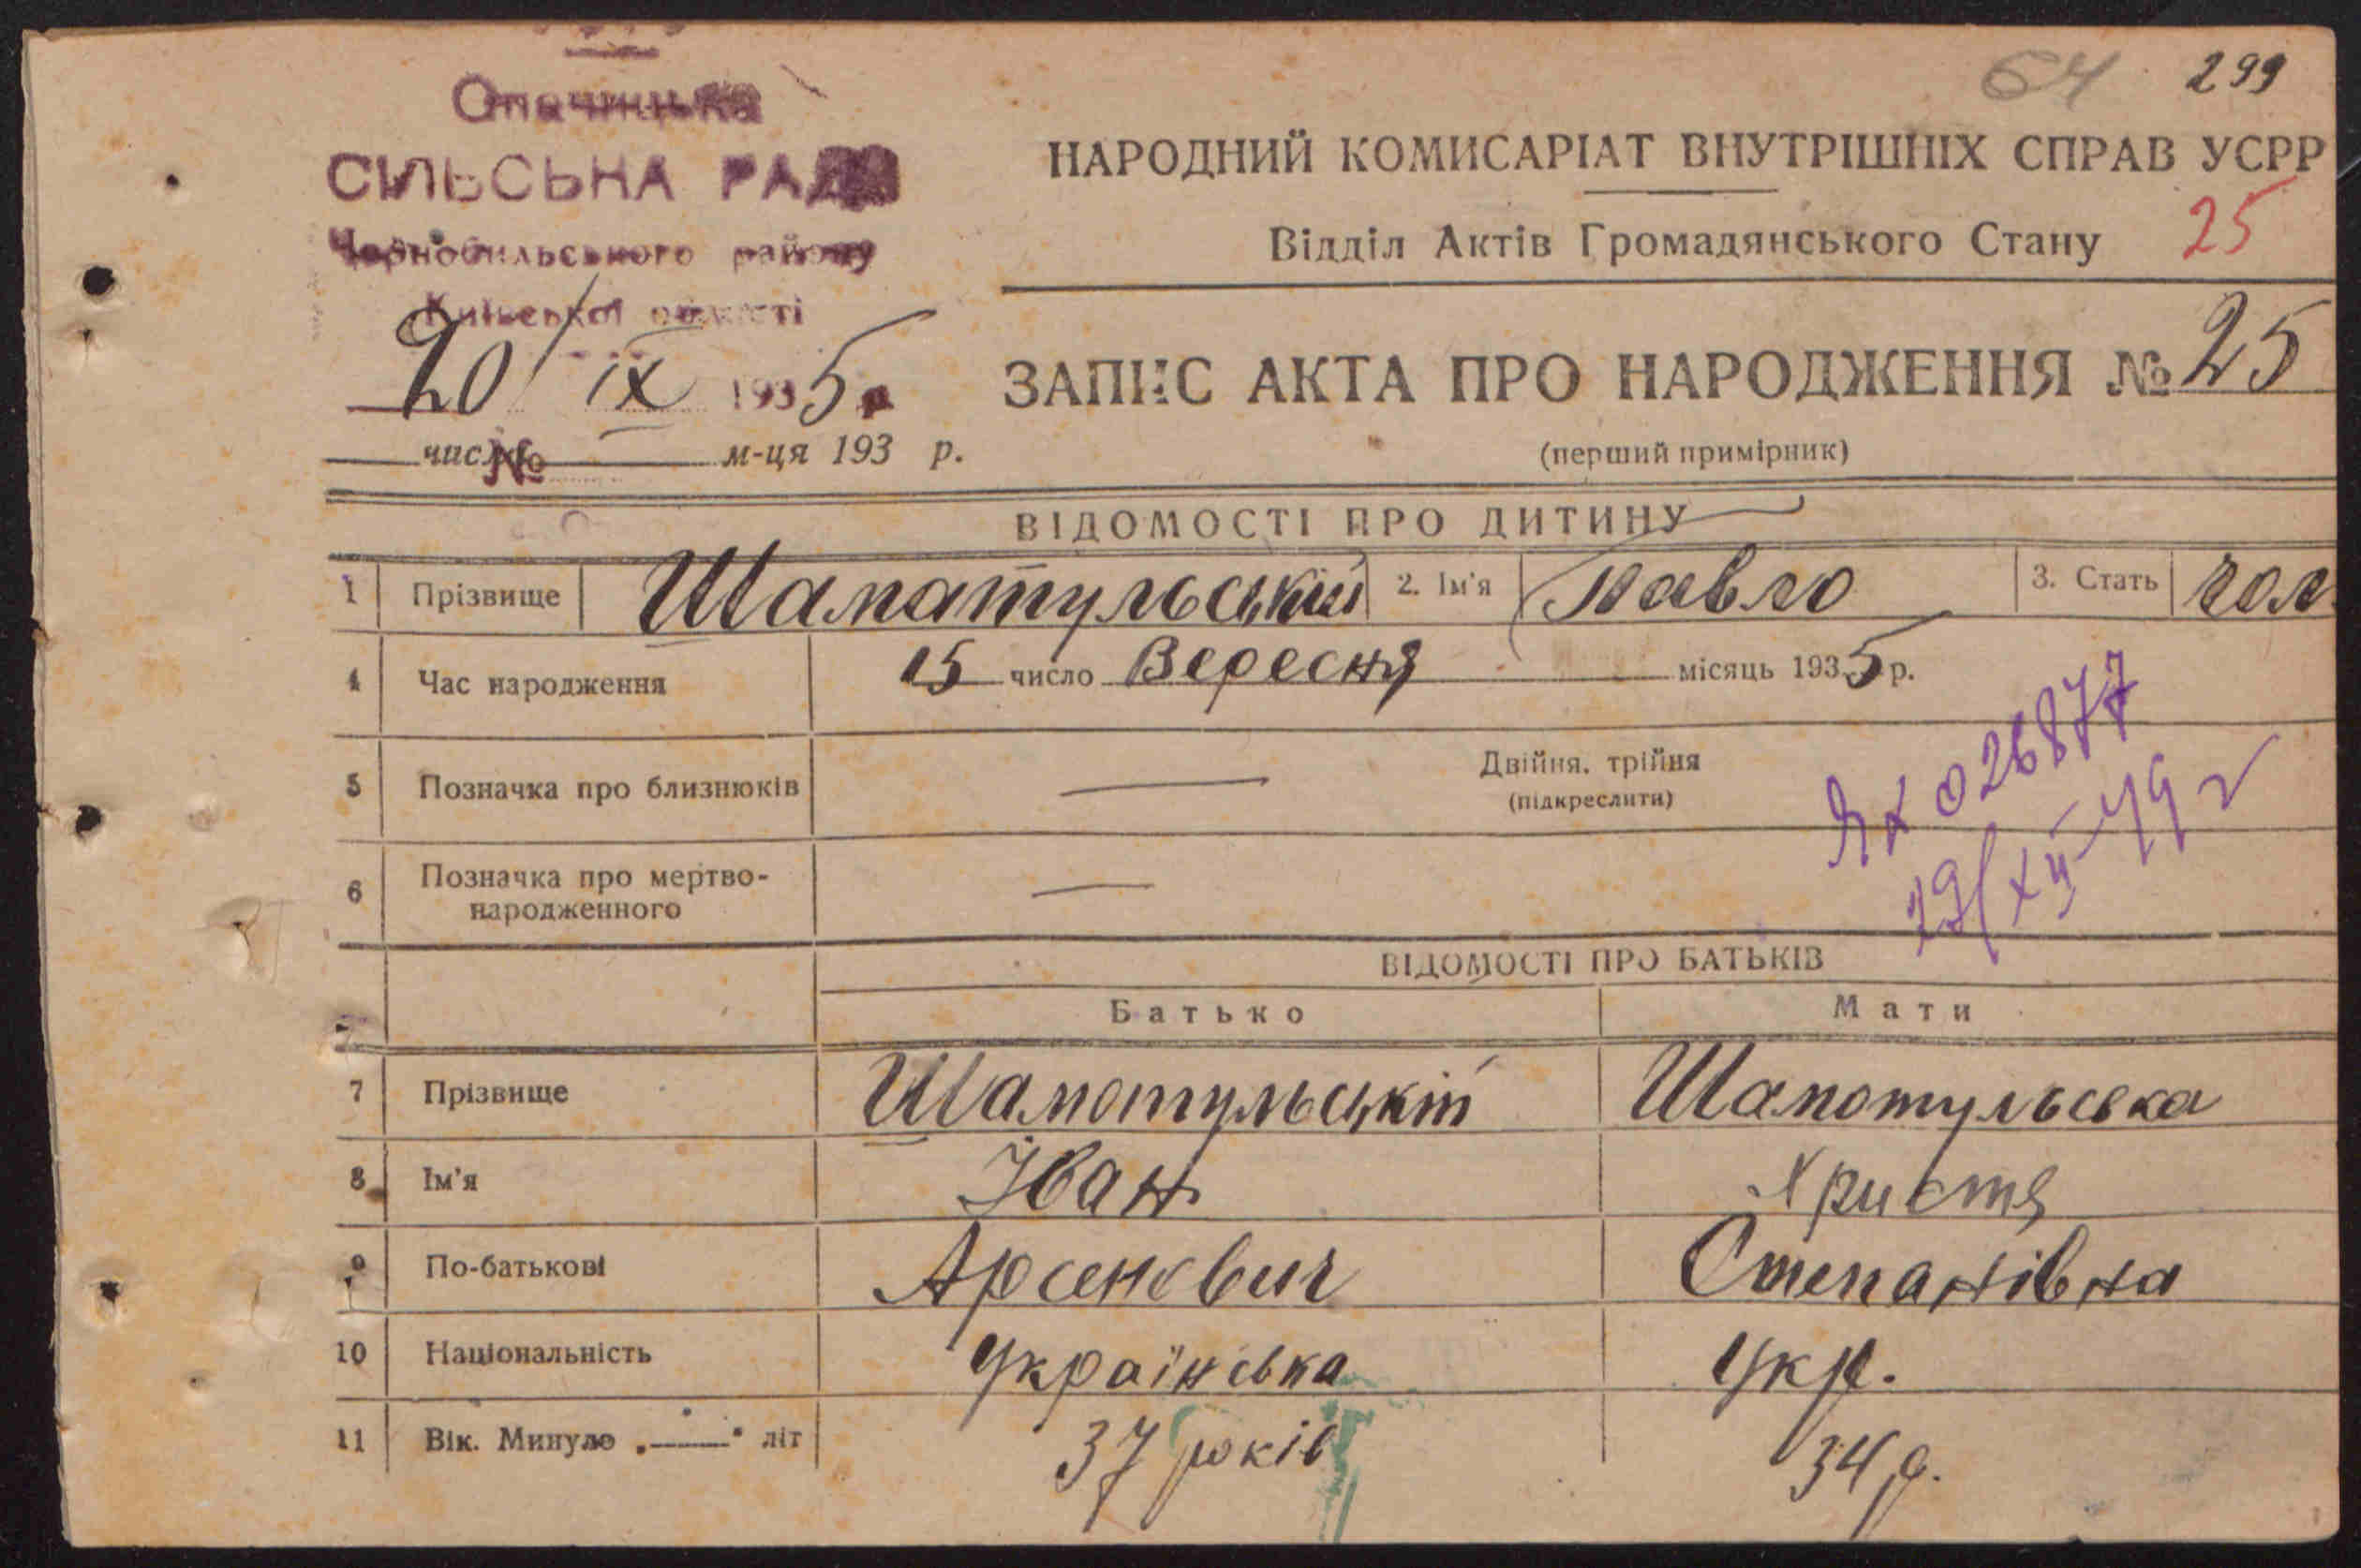 64 299
Опачицька
СІЛЬСЬКА РАДА
Чорнобильського району
Київської області
20/ IX 1935 р
№
число м-ця 193 р.
НАРОДНИЙ КОМИСАРІАТ ВНУТРІШНІХ СПРАВ УСРР
Відділ Актів Громадянського Стану 25
ЗАПИС АКТА ПРО НАРОДЖЕННЯ № 25
(перший примірник)
ВІДОМОСТІ ПРО ДИТИНУ
1 Прізвище Шапатульський 2. Ім'я Павло 3. Стать чол
4 Час народження 15 число Вересня місяць 1935 р.
5 Позначка про близнюків — Двійня, трійня
(підкреслити)
6 Позначка про мертво-
народженного —
ЯХ 026877
29/XII-49 г
ВІДОМОСТІ ПРО БАТЬКІВ
Батько Мати
7 Прізвище Шапотульській Шапотульська
8 Ім'я Іван Христя
9 По-батькові Арсенєвич Степанівна
10 Національність Українська Укр.
11 Вік. Минуло „——“ літ 37 років 34 р.